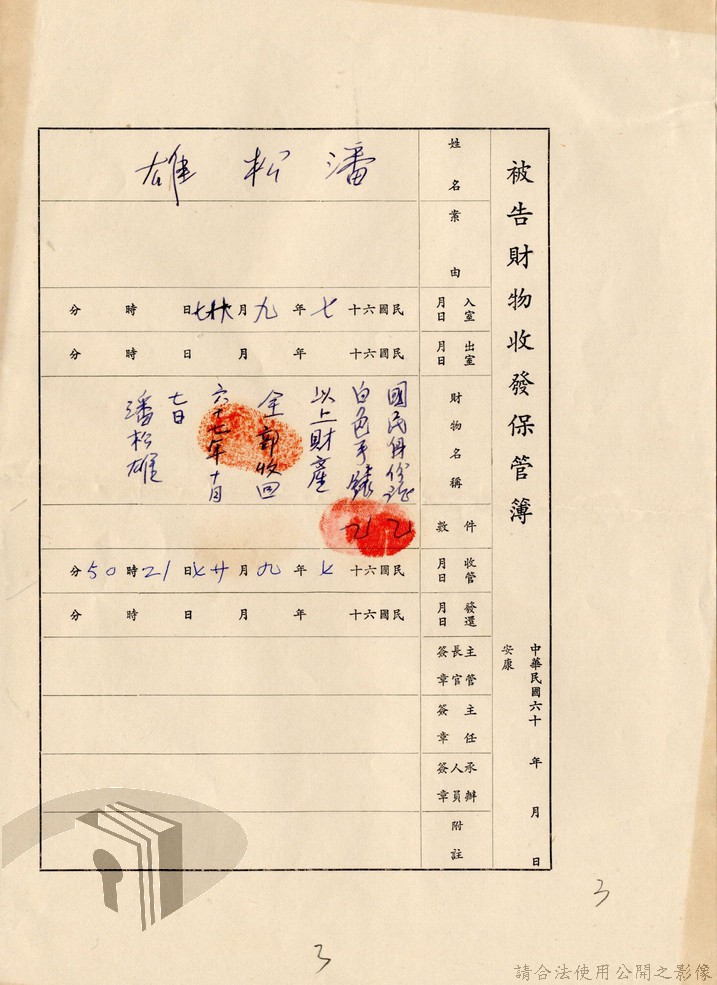 被告財物收發保管簿
中華民國六十　年　月　日
安康
姓名
潘松雄
案由
入室月日
民國六十七年九月廿七日　時　分
出室月日
民國六十　年　月　日　時　分
財物名稱
國民身份證
白色手錶
以上財產
全部收回
六十七年十月
七日
潘松雄
件數
乙
乙
收管月日
民國六十七年九月廿七日21時50分
發還月日
民國六十　年　月　日　時　分
主管長官簽章
主任簽章
承辦人員簽章
附註
3
3
請合法使用公開之影像